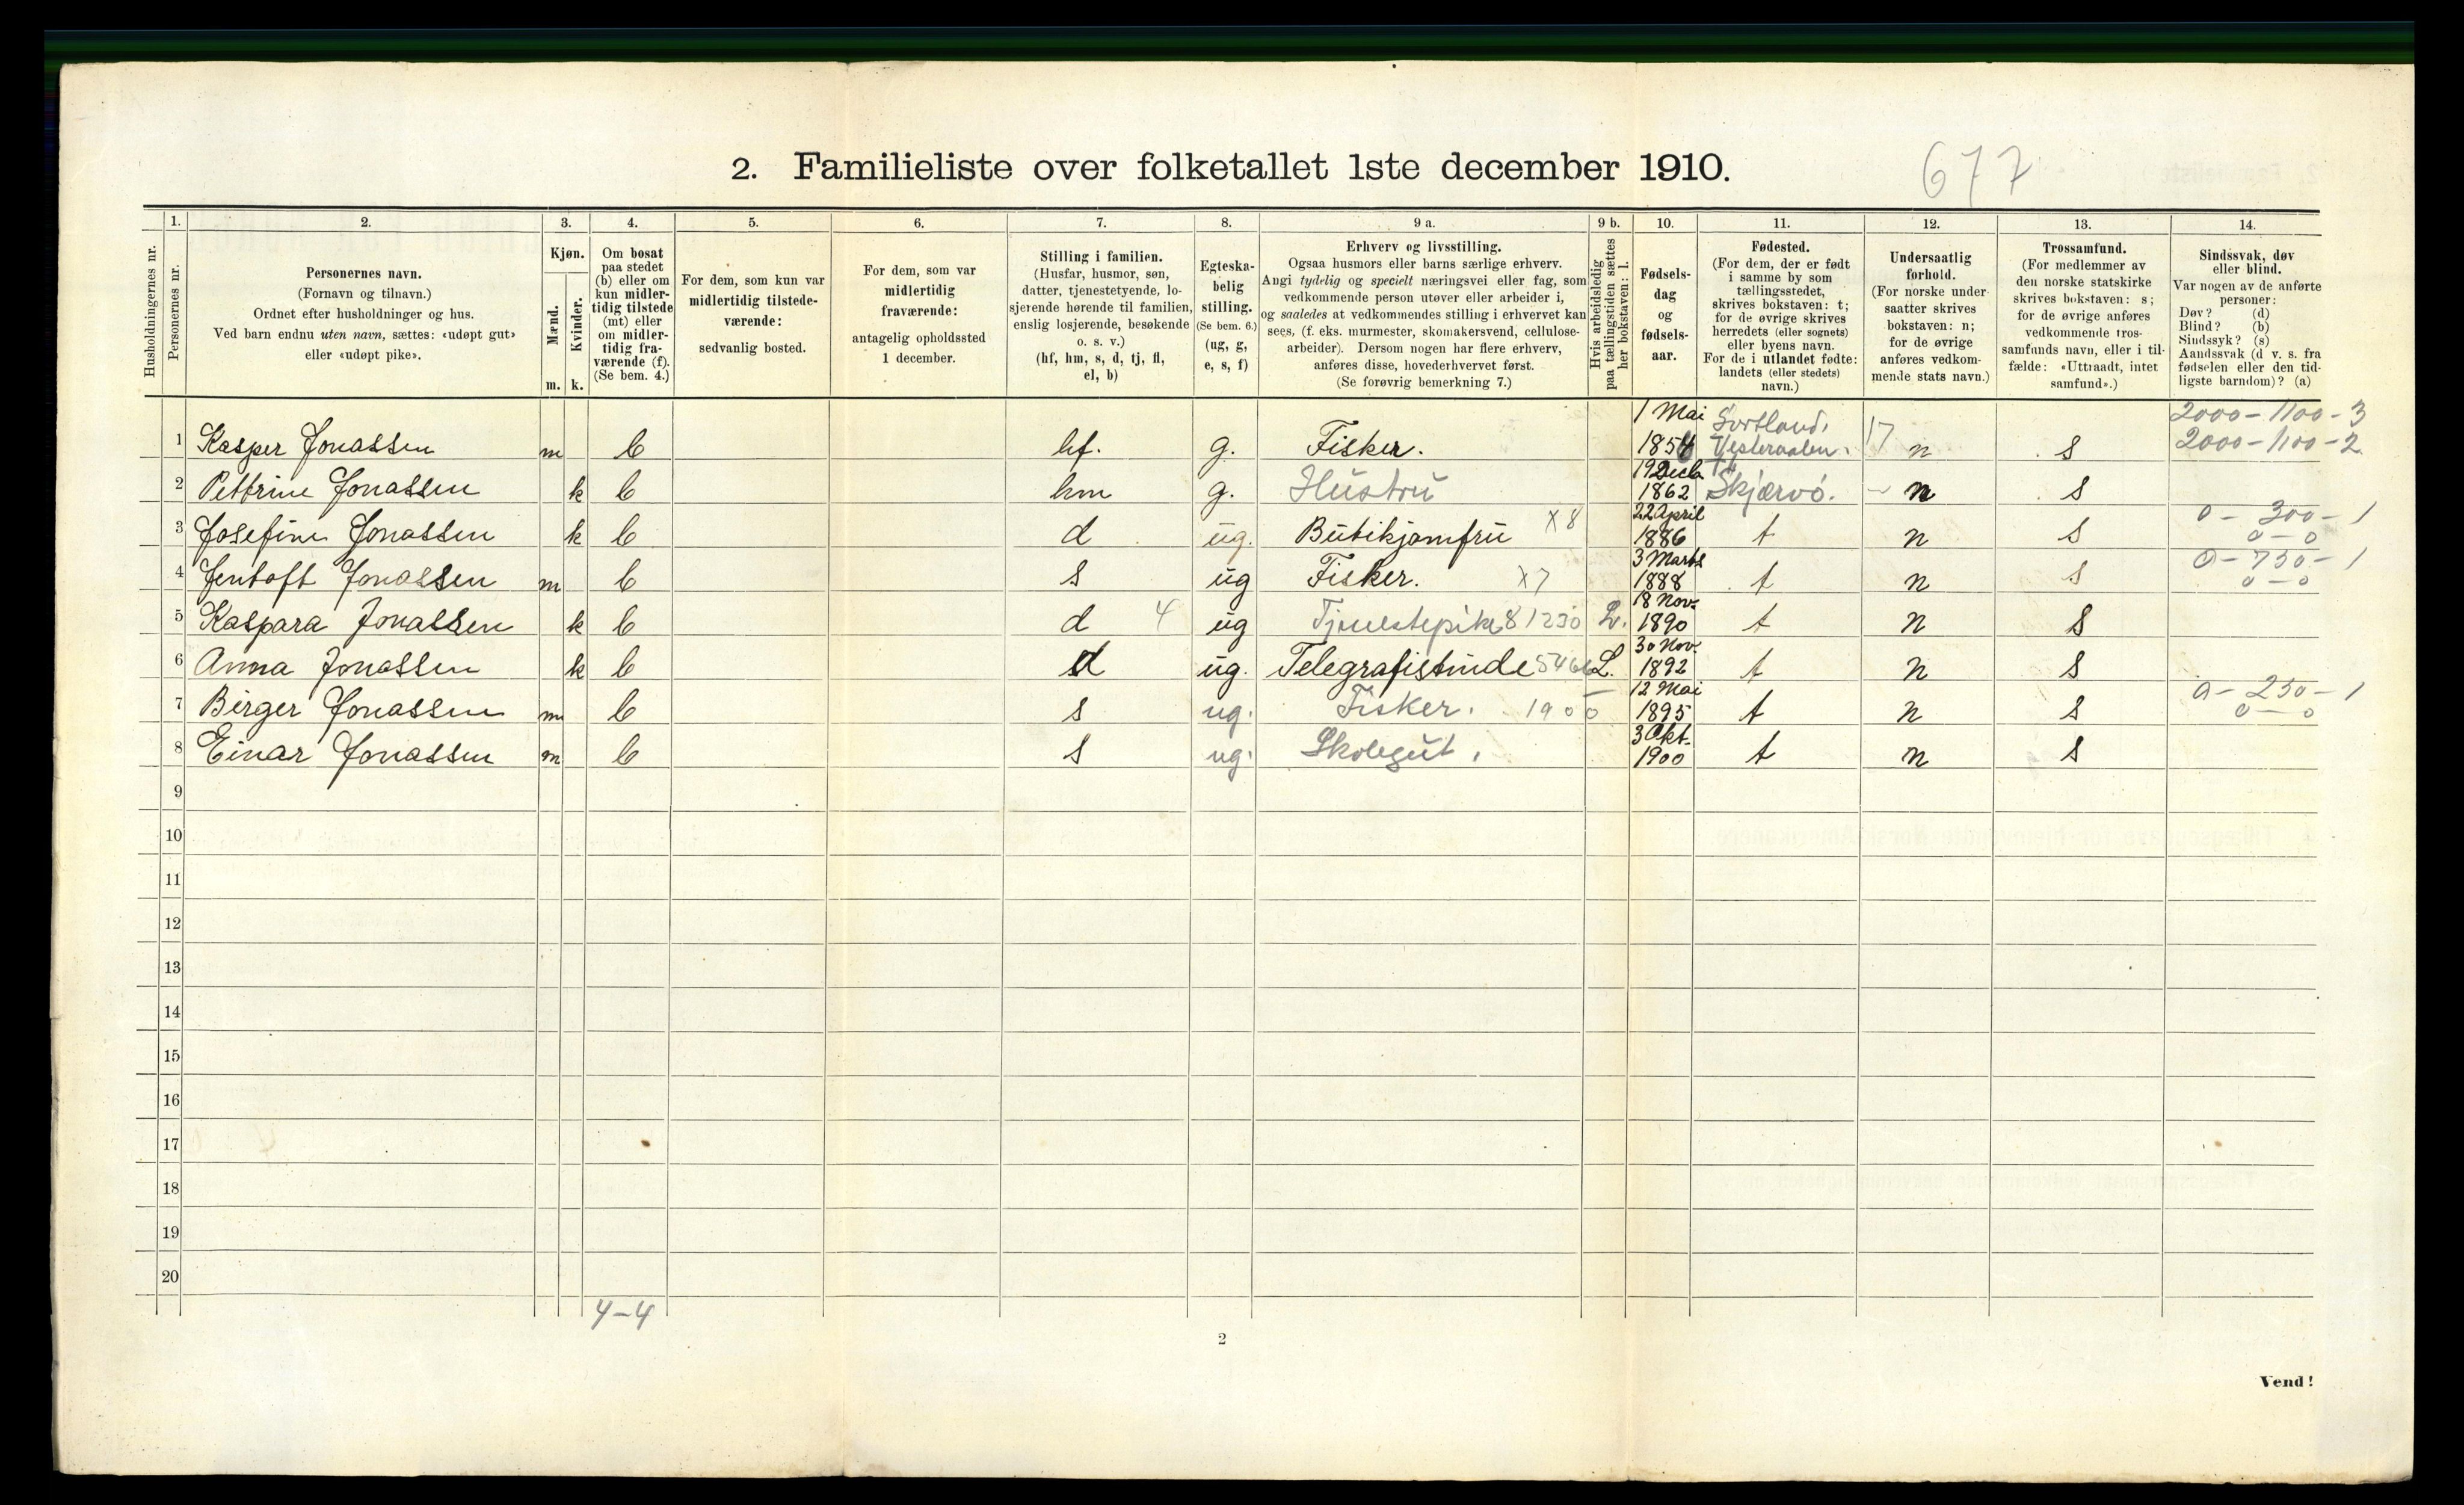 2. Familieliste over folketallet 1ste december 1910.
677
1. 2. 3. 4. 5. 6. 7. 8. 9 a. 9 b. 10. 11. 12. 13. 14.
Husholdningernes nr.
Personernes nr.
Personernes navn.
(Fornavn og tilnavn.)
Ordnet efter husholdninger og hus.
Ved barn endnu uten navn, sættes: «udøpt gut»
eller «udøpt pike».
Kjøn.
Mænd.
Kvinder.
m. k.
Om bosat
paa stedet
(b) eller om
kun midler-
tidig tilstede
(mt) eller
om midler-
tidig fra-
værende (f).
(Se bem. 4.)
For dem, som kun var
midlertidig tilstede-
værende:
sedvanlig bosted.
For dem, som var
midlertidig
fraværende:
antagelig opholdssted
1 december.
Stilling i familien.
(Husfar, husmor, søn,
datter, tjenestetyende, lo-
sjerende hørende til familien,
enslig losjerende, besøkende
o. s. v.)
(hf, hm, s, d, tj, fl,
el, b)
Egteska-
belig
stilling.
(Se bem. 6.)
(ug, g,
e, s, f)
Erhverv og livsstilling.
Ogsaa husmors eller barns særlige erhverv.
Angi tydelig og specielt næringsvei eller fag, som
vedkommende person utøver eller arbeider i,
og saaledes at vedkommendes stilling i erhvervet kan
sees, (f. eks. murmester, skomakersvend, cellulose-
arbeider). Dersom nogen har flere erhverv,
anføres disse, hovederhvervet først.
(Se forøvrig bemerkning 7.)
Hvis arbeidsledig
paa tællingstiden sættes
her bokstaven: l.
Fødsels-
dag
og
fødsels-
aar.
Fødested.
(For dem, der er født
i samme by som
tællingsstedet,
skrives bokstaven: t;
for de øvrige skrives
herredets (eller sognets)
eller byens navn.
For de i utlandet fødte:
landets (eller stedets)
navn.)
Undersaatlig
forhold.
(For norske under-
saatter skrives
bokstaven: n;
for de øvrige
anføres vedkom-
mende stats navn.)
Trossamfund.
(For medlemmer av
den norske statskirke
skrives bokstaven: s;
for de øvrige anføres
vedkommende tros-
samfunds navn, eller i til-
fælde: «Uttraadt, intet
samfund».)
Sindssvak, døv
eller blind.
Var nogen av de anførte
personer:
Døv? (d)
Blind? (b)
Sindssyk? (s)
Aandssvak (d v. s. fra
fødselen eller den tid-
ligste barndom)? (a)
1 Mai Sortland, 2000-1100-3
1 Kasper Jonassen m b hf. g. Fisker. 1854 Vesteraalen. 17 n s 2000-1100-2
19 Decb
2 Pettrine Jonassen k b hm g. Hustru 1862 Skjærvö. - n s
22 April 0 - 300 - 1
3 Josefine Jonassen k b d ug. Butikjomfru X8 1886 t n s 0-0
3 Marts 0-750-1
4 Jentoft Jonassen m b s ug Fisker. X7 1888 t n s 0-0
18 Nov.
5 Kaspara Jonassen k b d 4 ug Tjenestepike 81230 L. 1890 t n s
30 Nov.
6 Anna Jonassen k b d ug. Telegrafistinde L. 1892 t n s
12 Mai 0-250-1
7 Birger Jonassen m b s ug. Fisker. 1900 1895 t n s 0-0
3 Okt.
8 Einar Jonassen m b s ug. Skolegut. 1900 t n s
9
10
11
12
13
14
15
16
17
18
19
20
4-4
2
Vend!